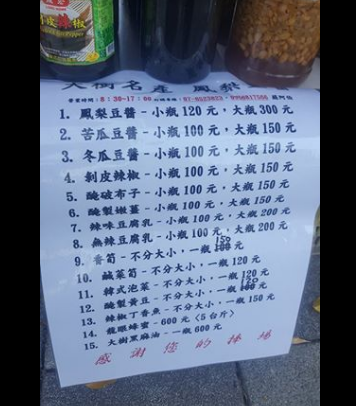 大樹名產 鳳梨
營業時間：8：30-17：00
1. 鳳梨豆醬－小瓶120元，大瓶300元
2. 苦瓜豆醬－小瓶100元，大瓶150元
3. 冬瓜豆醬－小瓶100元，大瓶150元
4. 剝皮辣椒－小瓶100元，大瓶150元
5. 醃破布子－小瓶100元，大瓶150元
6. 醃製嫩薑－小瓶100元，大瓶150元
7. 辣味豆腐乳－小瓶100元，大瓶200元
8. 無辣豆腐乳－小瓶100元，大瓶200元
9. 香筍－不分大小，一瓶150元
10. 鹹菜筍－不分大小，一瓶120元
11. 韓式泡菜－不分大小，一瓶120元
12. 醃製黃豆－不分大小，一瓶150元
13. 辣椒丁香魚－不分大小，一瓶150元
14. 龍眼蜂蜜－600元（5台斤）
15. 大樹黑麻油－一瓶600元
感謝您的捧場